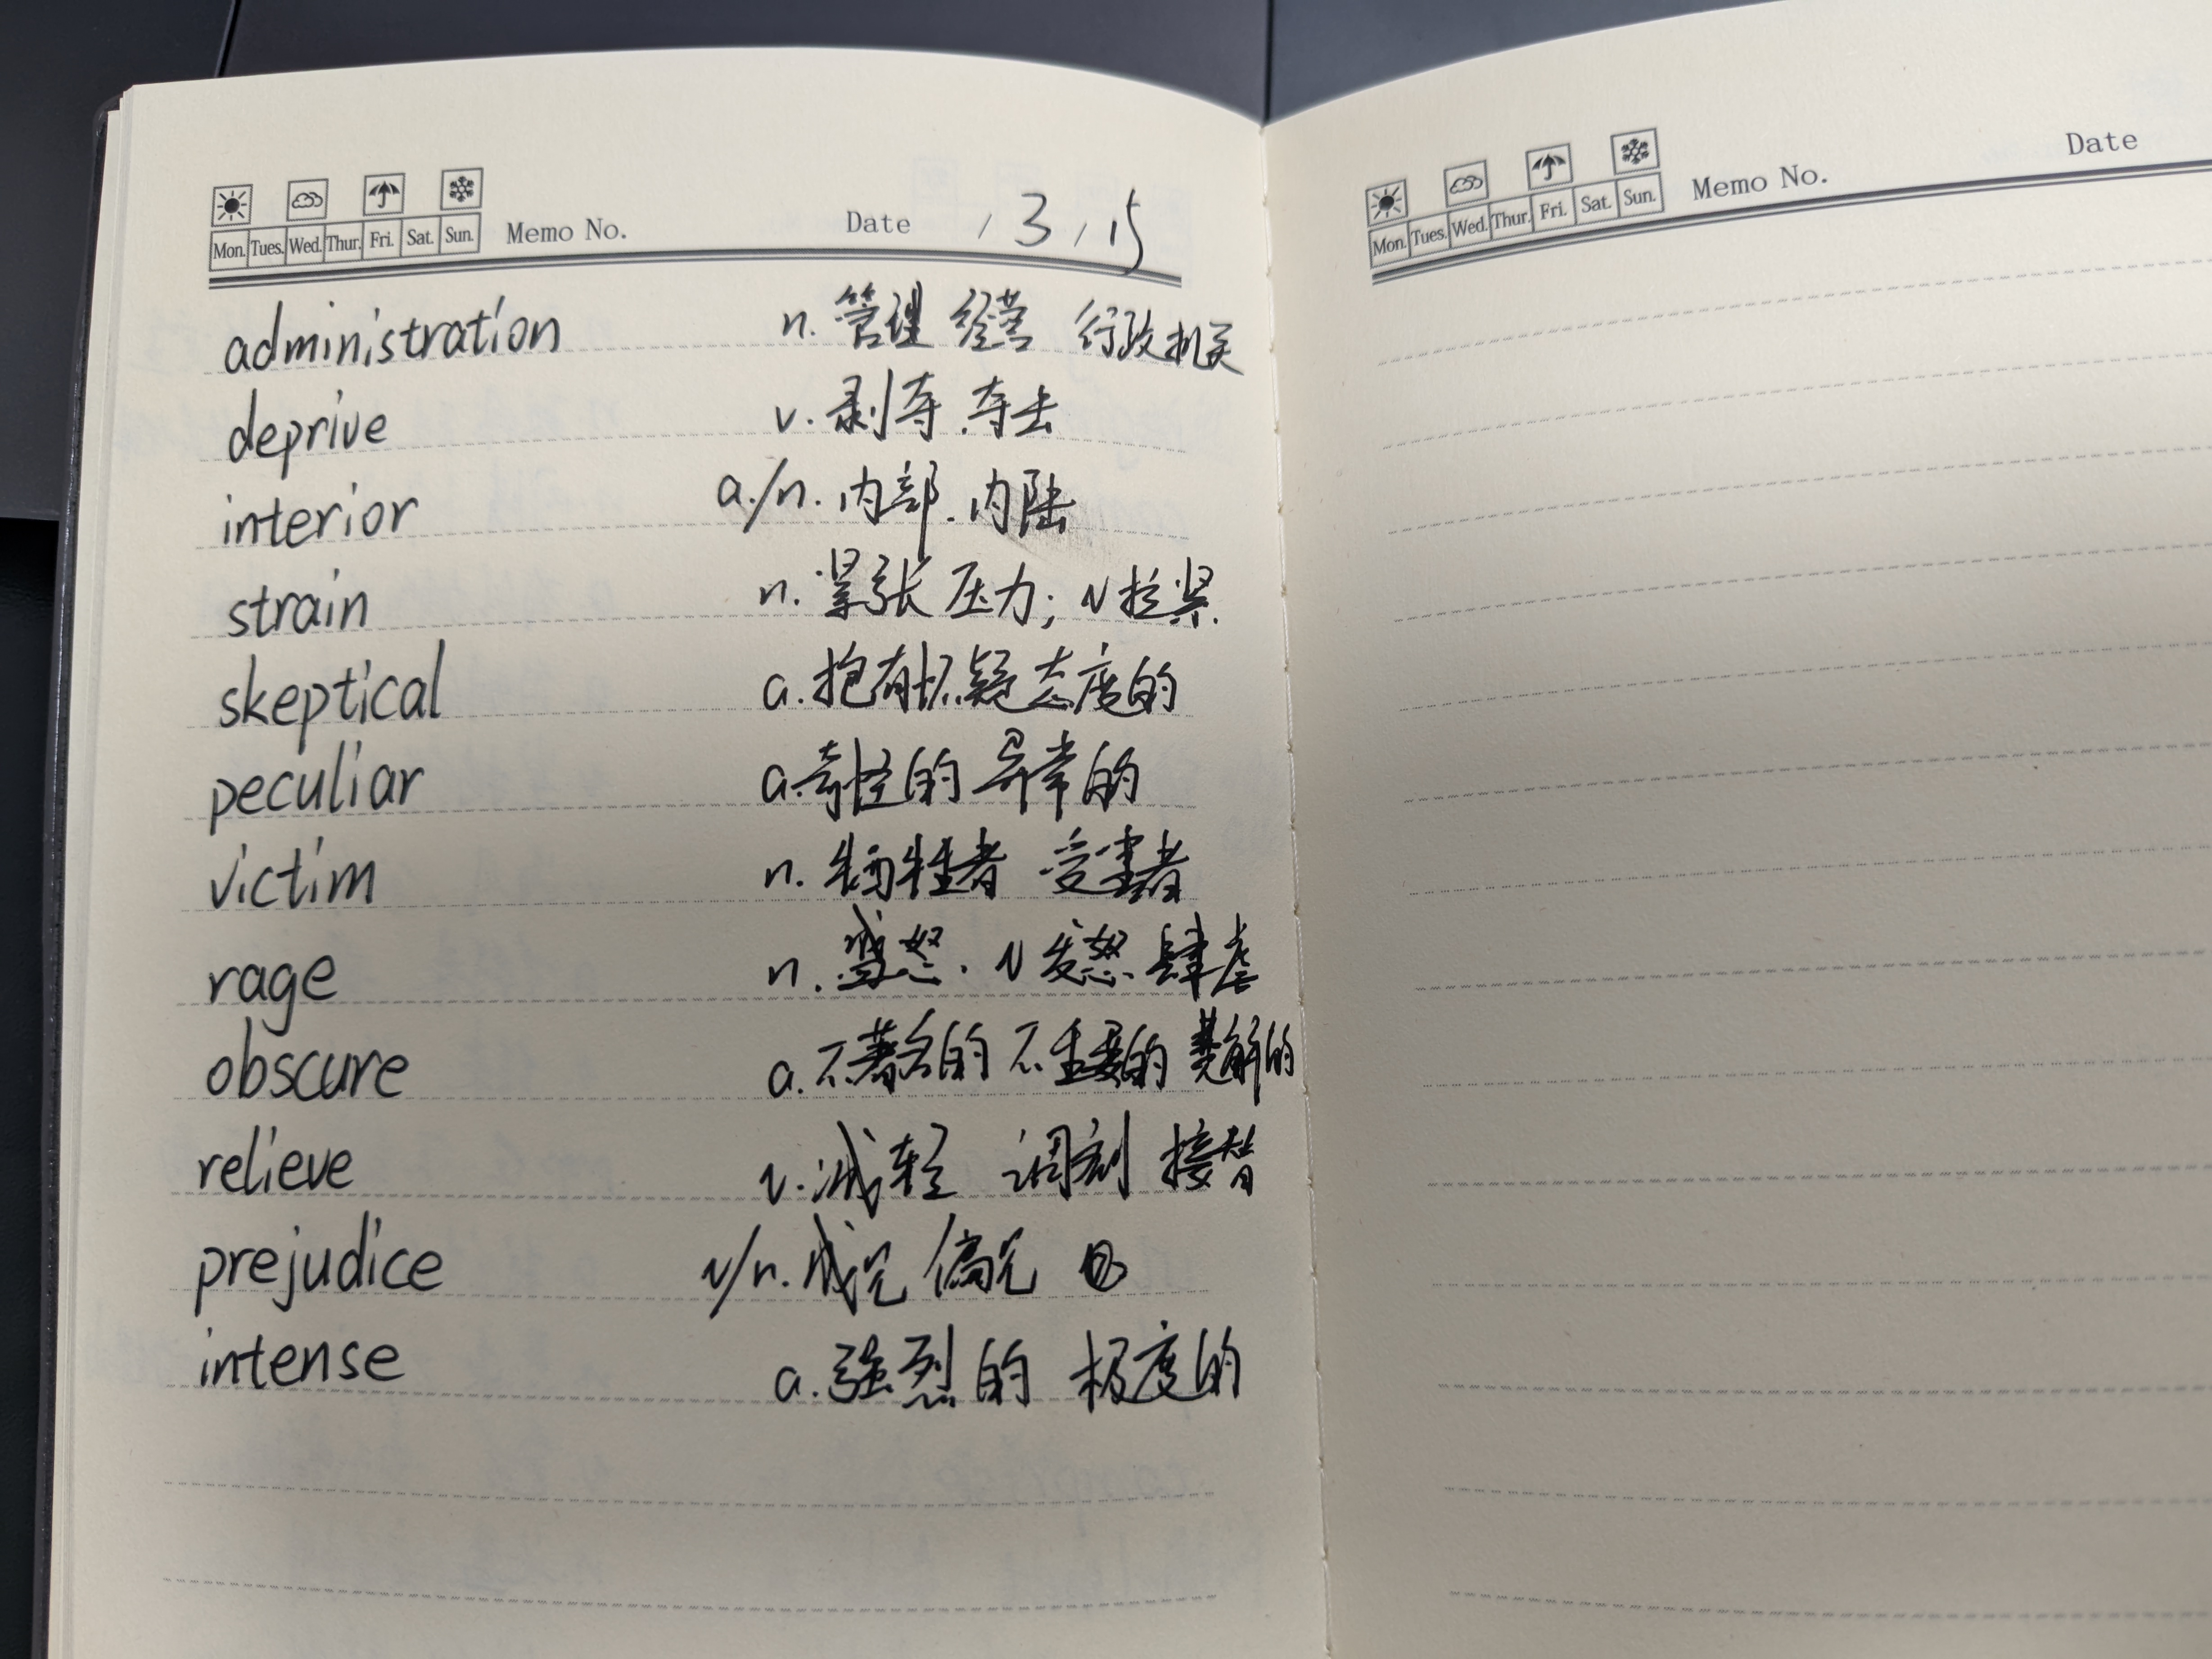 Mon. Tues. Wed. Thur. Fri. Sat. Sun. Memo No. Date / 3 / 15
administration n. 管理 经营 行政机关
deprive v. 剥夺.夺去
interior a./n. 内部.内陆
strain n. 紧张 压力; v 拉紧.
skeptical a. 抱有怀疑态度的
peculiar a. 奇怪的 异常的
victim n. 牺牲者 受害者
rage n. 盛怒. v 发怒 肆虐
obscure a. 不著名的 不重要的 费解的
relieve v. 减轻 调剂 接替
prejudice v/n. 成见 偏见
intense a. 强烈的 极度的
Mon. Tues. Wed. Thur. Fri. Sat. Sun. Memo No. Date